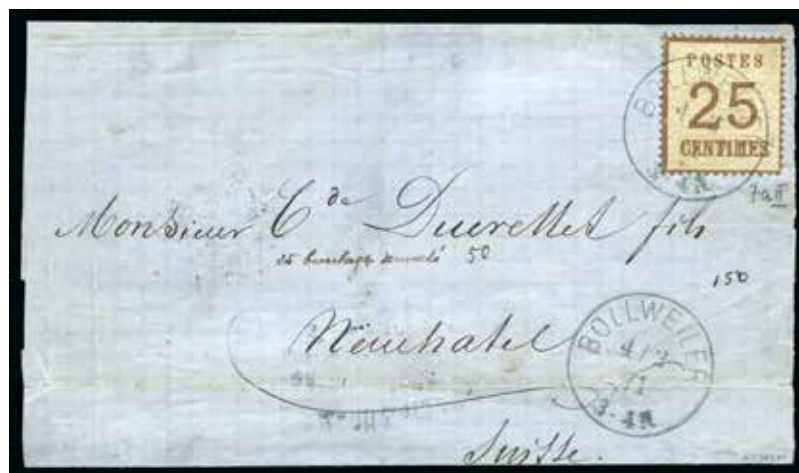 POSTES
25
CENTIMES
7a II
Monsieur Cde Ducrettet fils
25 burelage renversé 50
150
Neuchatel
BOLLWEILER
4/2
71
3-4N
Suisse.